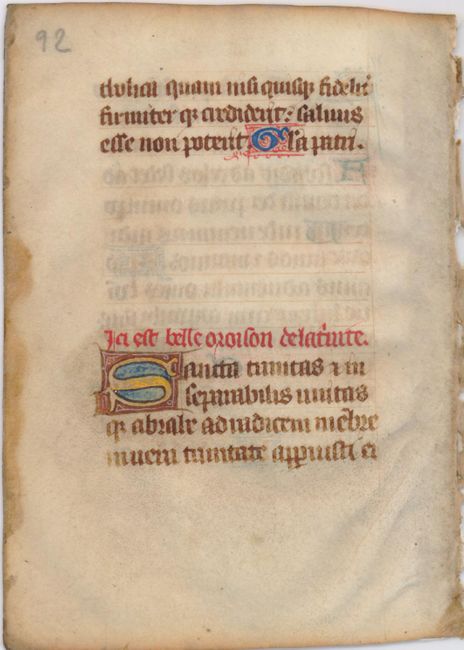 92
tholica quam nisi quisq fidelit
firmiter q crediderit: saluus
esse non poterit. Gl'a patri.
Ici est belle oroison de la t'nite.
Sancta trinitas & in
separabilis unitas
q abrahe ad iudicem mēbre
in uera trinitate apparuisti ei